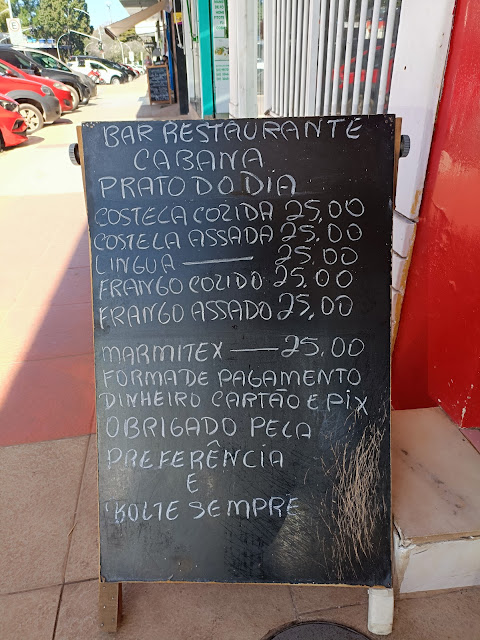 BAR RESTAURANTE
CABANA
PRATO DO DIA
COSTELA COZIDA 25,00
COSTELA ASSADA 25,00
LINGUA — 25,00
FRANGO COZIDO 25,00
FRANGO ASSADO 25,00
MARMITEX — 25,00
FORMA DE PAGAMENTO
DINHEIRO CARTÃO E PIX
OBRIGADO PELA
PREFERÊNCIA
E
VOLTE SEMPRE